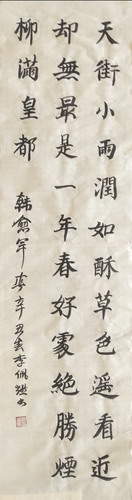 天街小雨潤如酥草色遥看近
却無最是一年春好處絶勝煙
柳滿皇都
韓愈 早春 辛丑